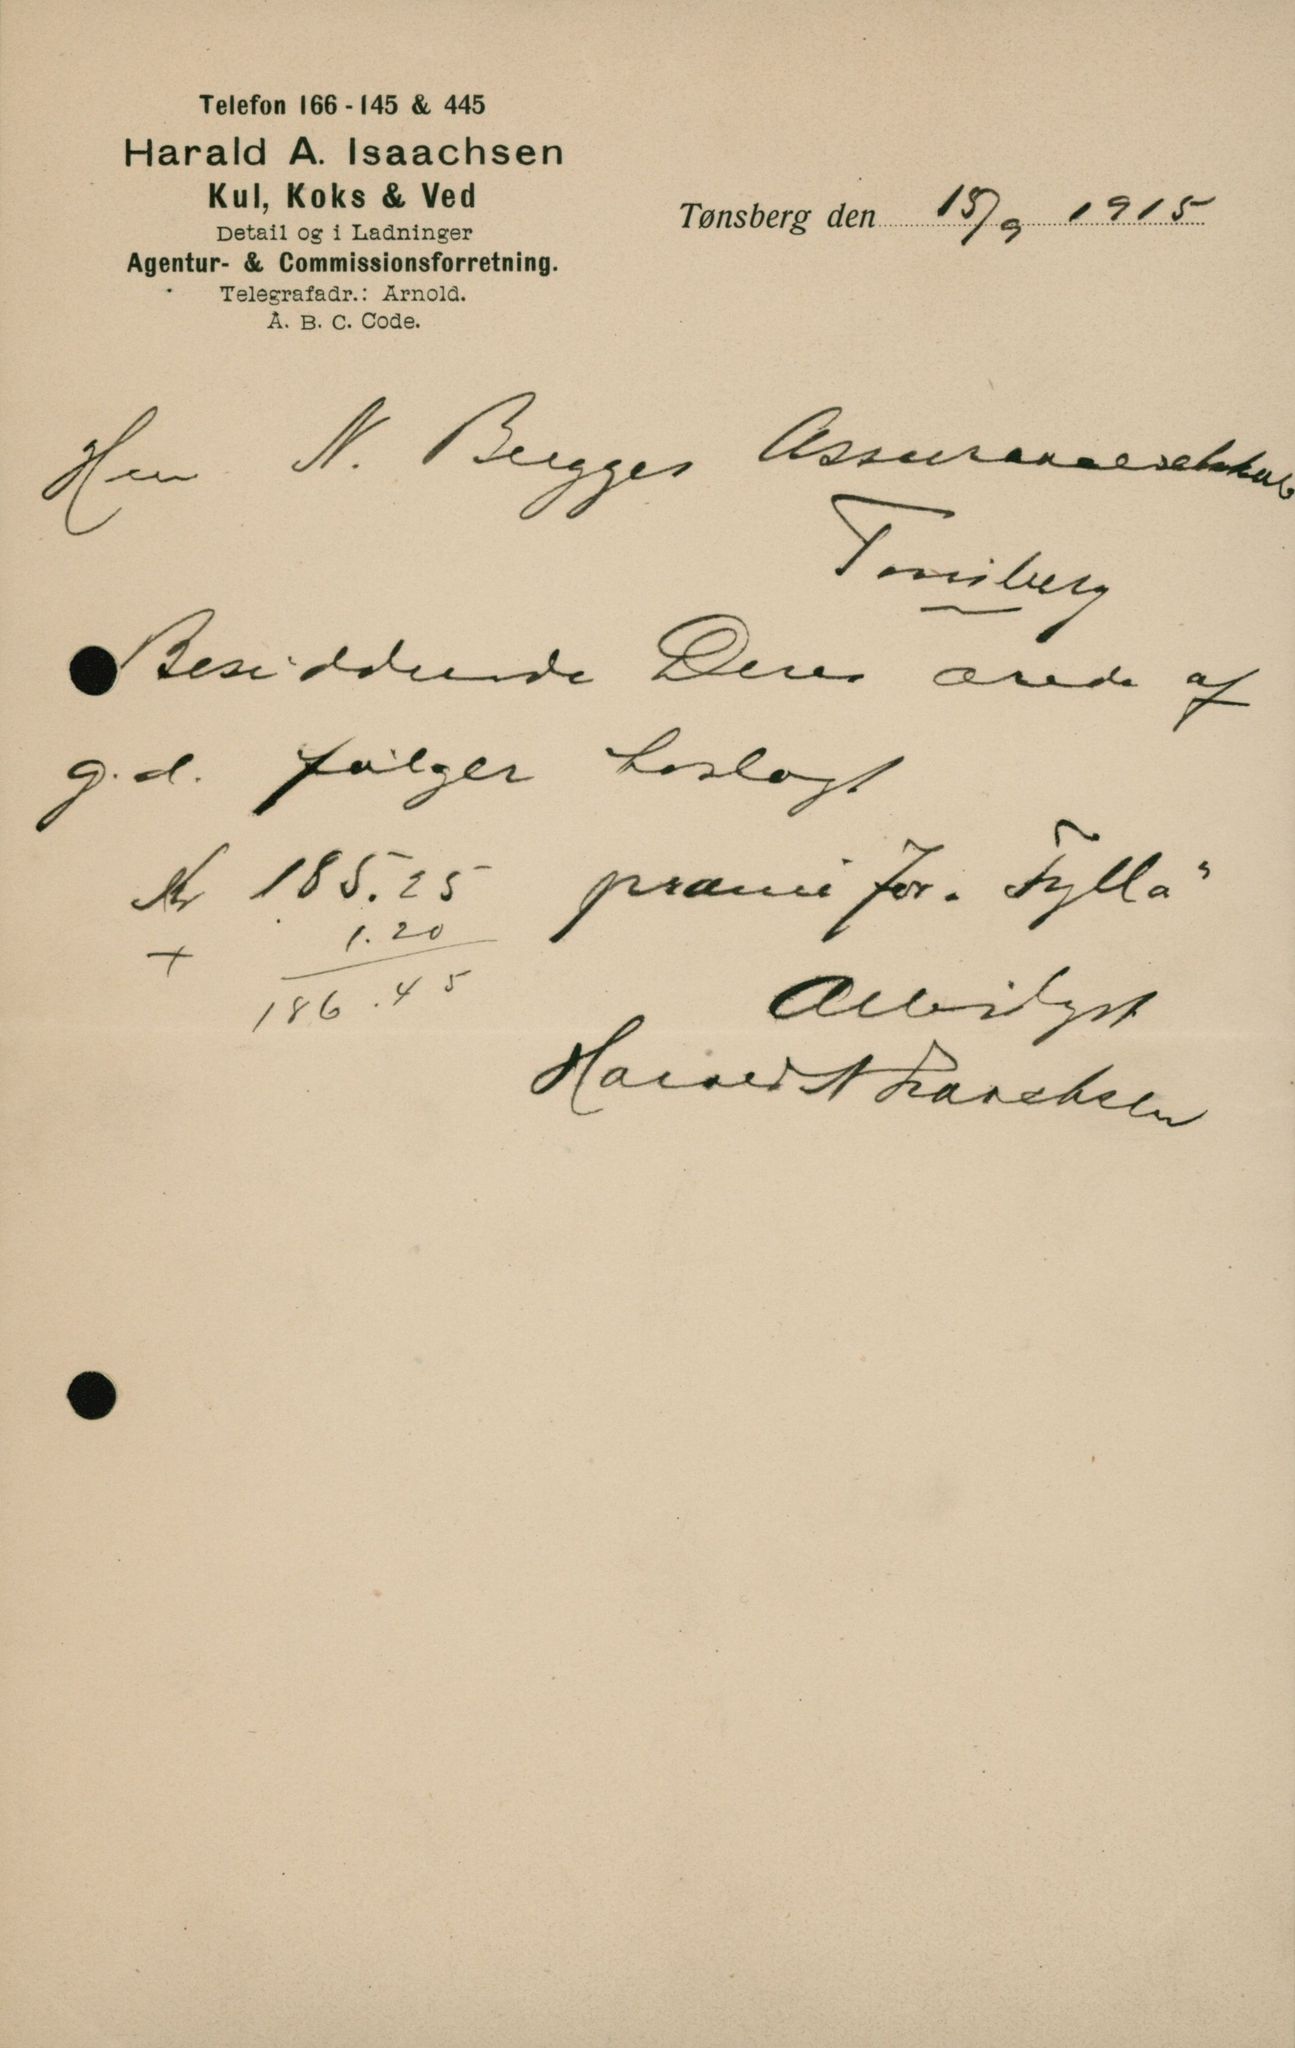 Telefon 166 - 145 & 445
Harald A. Isaachsen
Kul, Koks & Ved
Detail og i Ladninger
Agentur- & Commissionsforretning.
Telegrafadr.: Arnold.
A. B. C. Code.
Tønsberg den 15/9 1915
Herr N. Bugges Assuranceselskab
Tønsberg
Besiddende Deres ærede af
g.d. følger hoslagt
Kr 185.25 præmie for „Fylla"
+ 1.20
186.45
Ærbødigst
Harald A Isaachsen